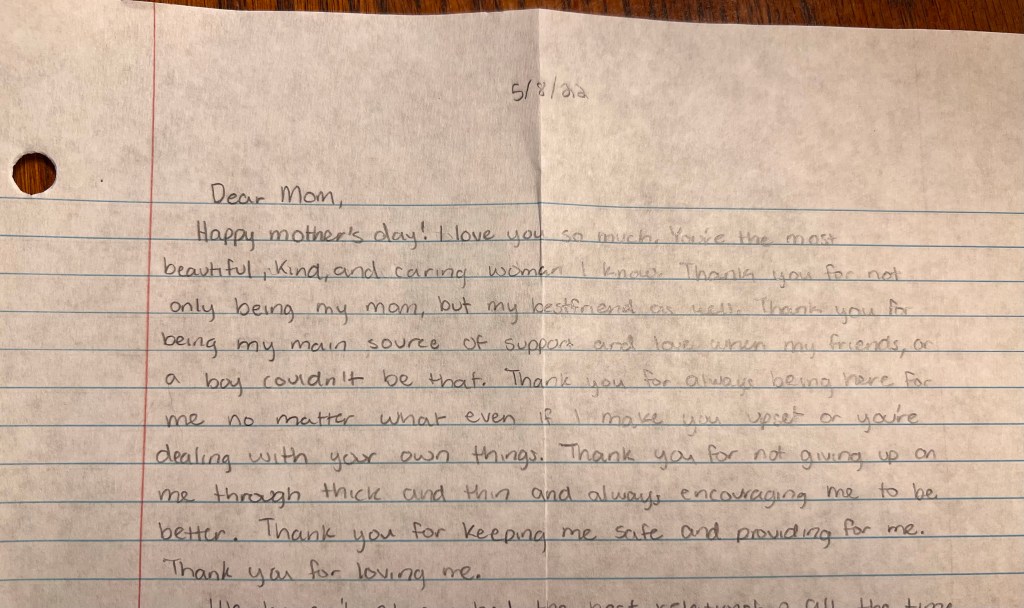 5/8/22
Dear Mom,
Happy mother's day! I love you so much. You're the most
beautiful, kind, and caring woman I know. Thank you for not
only being my mom, but my bestfriend as well. Thank you for
being my main source of support and love when my friends, or
a boy couldn't be that. Thank you for always being here for
me no matter what even if I make you upset or you're
dealing with your own things. Thank you for not giving up on
me through thick and thin and always encouraging me to be
better. Thank you for keeping me safe and providing for me.
Thank you for loving me.
had the best all the time